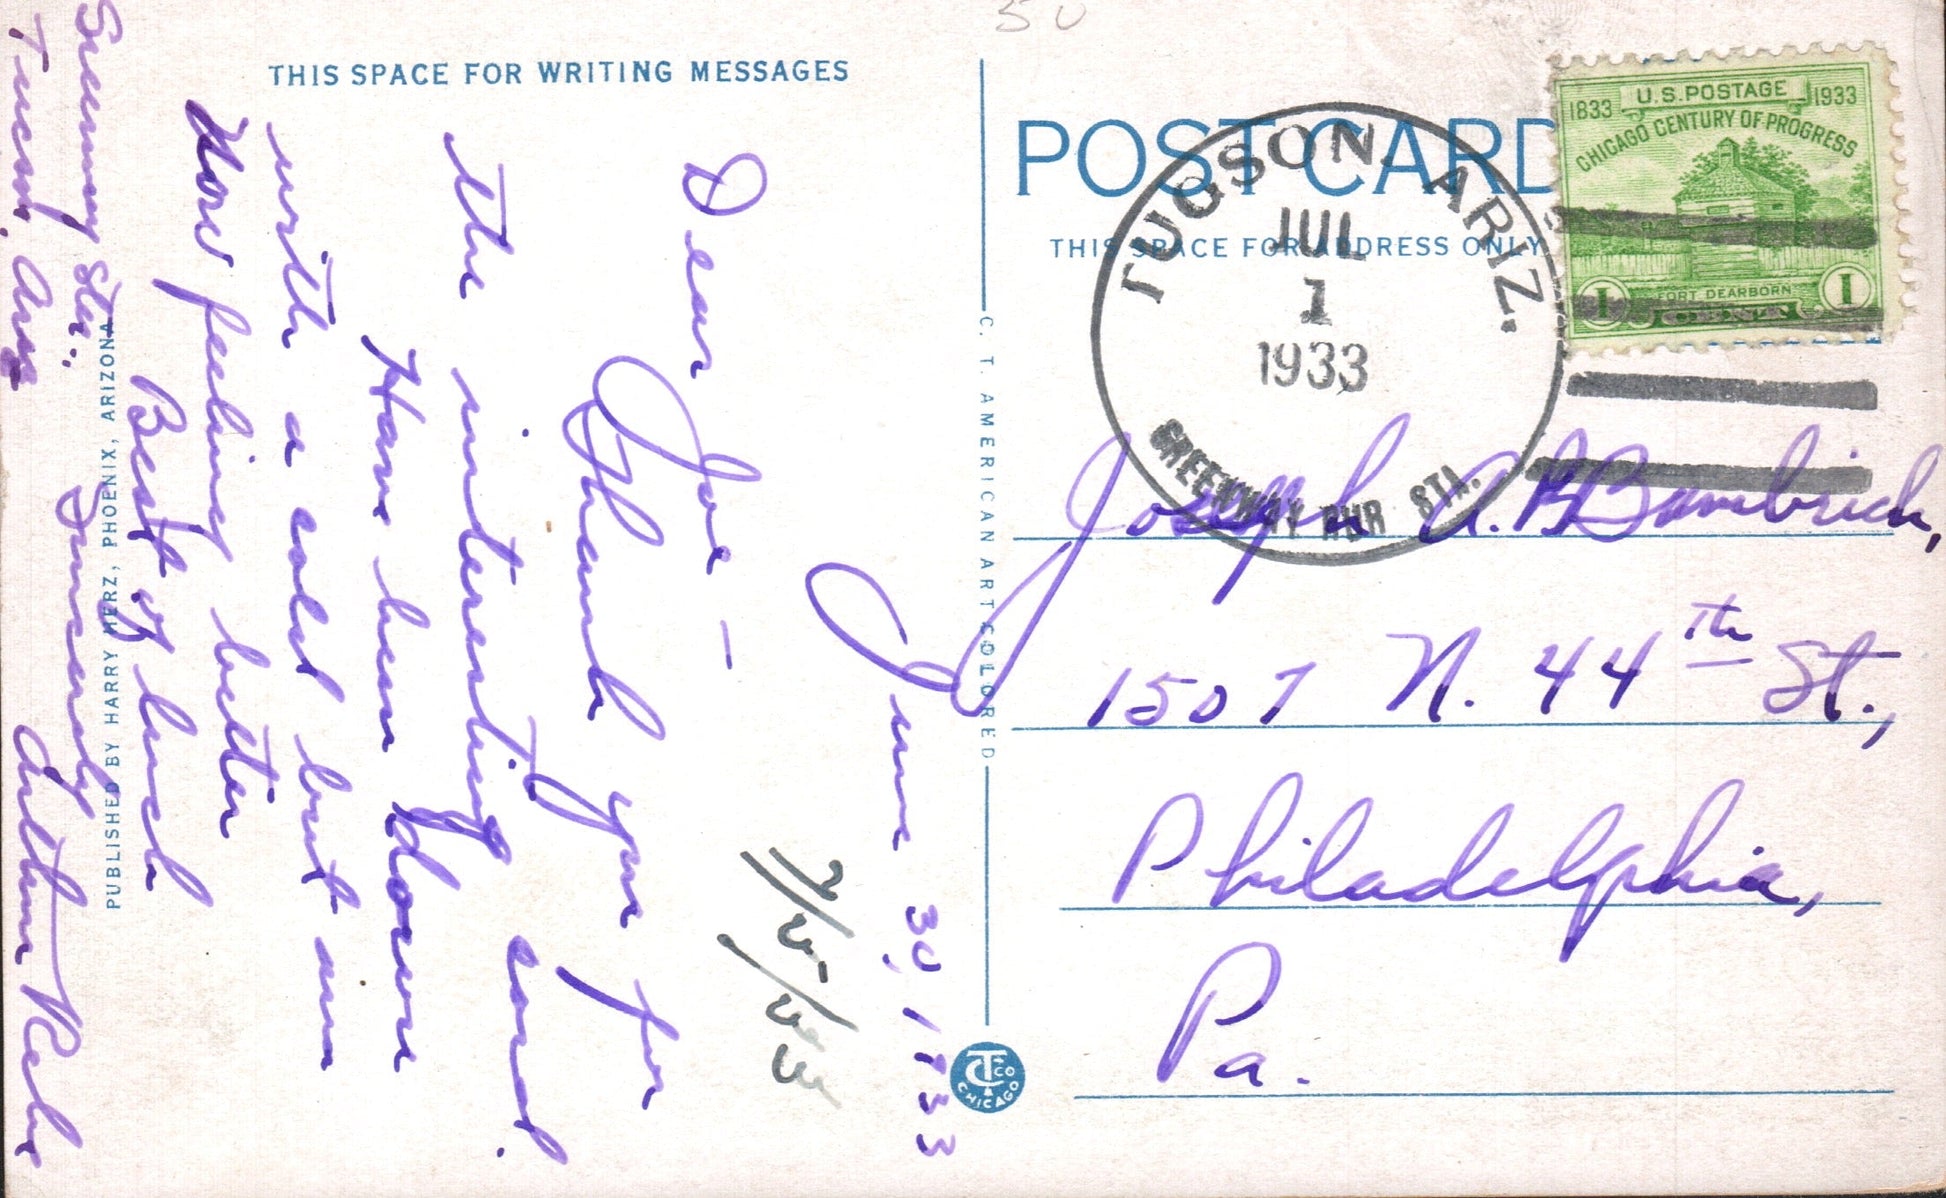 50
THIS SPACE FOR WRITING MESSAGES
June 30, 1933
7/5/33
Dear Joe —
Thank you for
the interesting card.
Have been down
with a cold but am
now feeling better
Best of luck
Sincerely
Arthur
Sunny Sta.
Tucson, Ariz
PUBLISHED BY HARRY HERZ, PHOENIX, ARIZONA
C. T. AMERICAN ART COLORED
CT CO
CHICAGO
POST CARD
THIS SPACE FOR ADDRESS ONLY
TUCSON, ARIZ.
JUL
1
1933
GREENWAY RUR STA.
1833 U.S. POSTAGE 1933
CHICAGO CENTURY OF PROGRESS
FORT DEARBORN
1 CENT 1
Joseph A. Bambrick,
1507 N. 44th St.,
Philadelphia,
Pa.